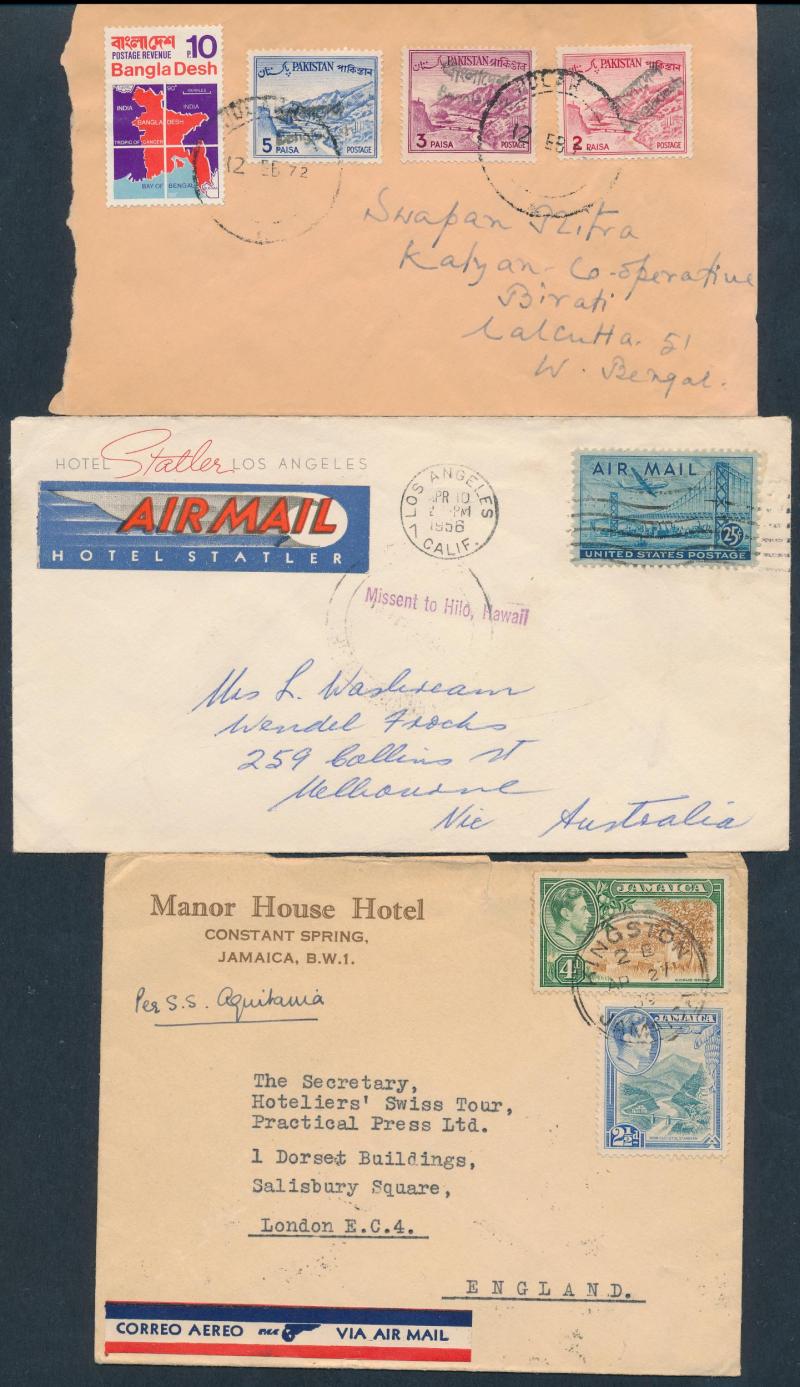 বাংলাদেশ 10 P.
POSTAGE REVENUE
Bangla Desh
INDIA
90°
INDIA
BANGLA DESH
TROPIC OF CANCER
BAY OF BENGAL
INDIA
پاکستان PAKISTAN পাকিস্তান
5 PAISA POSTAGE
پاکستان PAKISTAN পাকিস্তান
3 PAISA POSTAGE
پاکستان PAKISTAN পাকিস্তান
2 PAISA POSTAGE
বাংলাদেশ
Bangla Desh
12 EB 72
12 EB
Swapan Mitra
Kalyan Co-operative
Birati
Calcutta. 51
W. Bengal.
HOTEL Statler LOS ANGELES
AIR MAIL
HOTEL STATLER
LOS ANGELES
APR 10
PM
1956
7 CALIF.
AIR MAIL
25¢
UNITED STATES POSTAGE
Missent to Hilo, Hawaii
Mrs L.
Wendel Frocks
259 Collins St
Melbourne
Vic Australia
Manor House Hotel
CONSTANT SPRING,
JAMAICA, B.W.1.
Per S.S. Aquitania
JAMAICA
4d
KINGSTON
2 B
AP 27
39
JAMAICA
JAMAICA
2½d
The Secretary,
Hoteliers' Swiss Tour,
Practical Press Ltd.
1 Dorset Buildings,
Salisbury Square,
London E.C.4.
ENGLAND.
CORREO AEREO VIA AIR MAIL